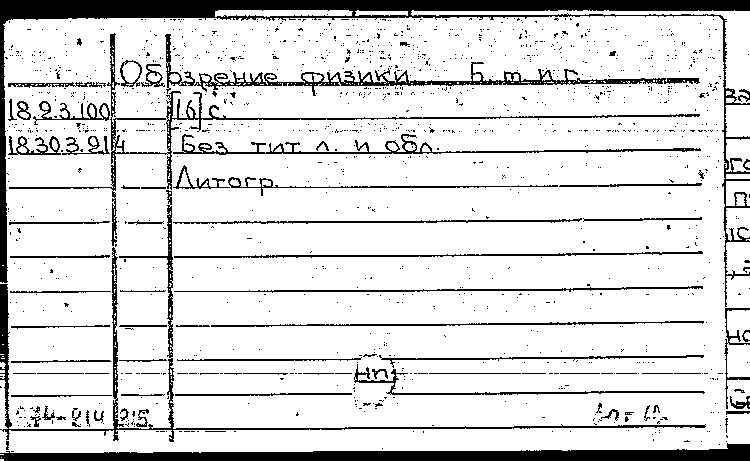 Обозрение физики Б. т. и г.
18.2.3.100 [16] с.
18.30.3.214 Без тит л. и обл.
Литогр.
нп
74-214 215.